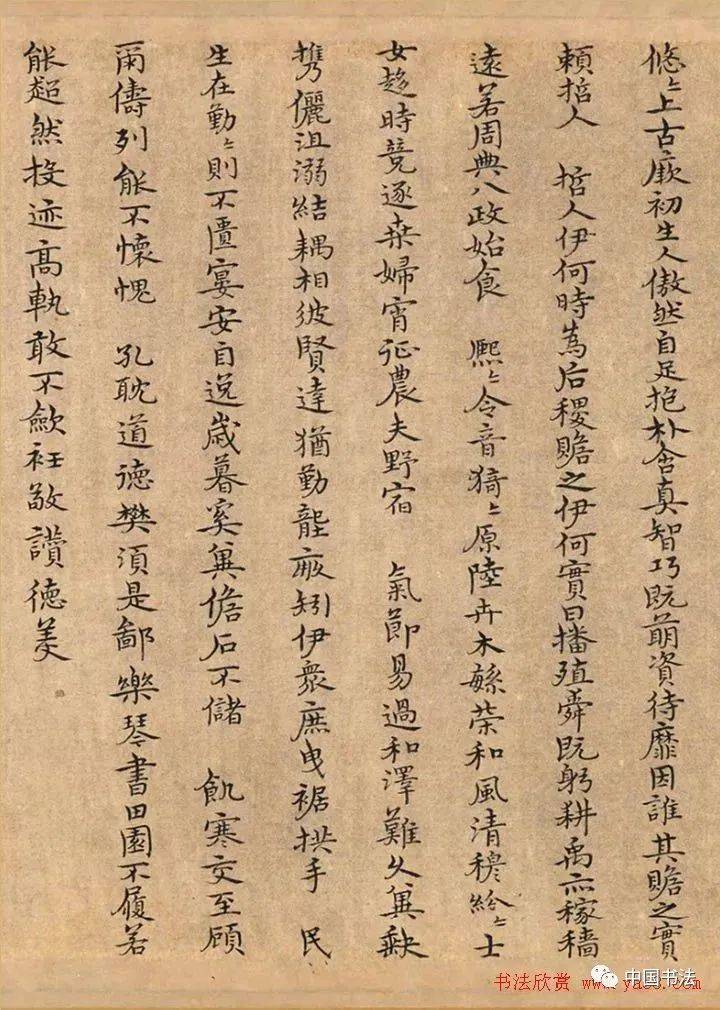 悠〻上古厥初生人傲然自足抱朴含真智巧既萌資待靡因誰其贍之實
賴哲人　哲人伊何時為后稷贍之伊何實曰播殖舜既躬耕禹亦稼穡
遠若周典八政始食　熙〻令音猗〻原陸卉木繁榮和風清穆紛〻士
女趍時競逐桒婦宵征農夫野宿　氣節易過和澤難久冀缺
携儷沮溺結耦相彼賢達猶勤壟畝矧伊衆庶曳裾拱手　民
生在勤〻則不匱宴安自逸歲暮奚冀儋石不儲　飢寒交至顧
爾儔列能不懷愧　孔耽道德樊須是鄙樂琴書田園不履若
能超然投迹高軌敢不歛衽敬讚德美
书法欣赏 www.yac8.com
中国书法